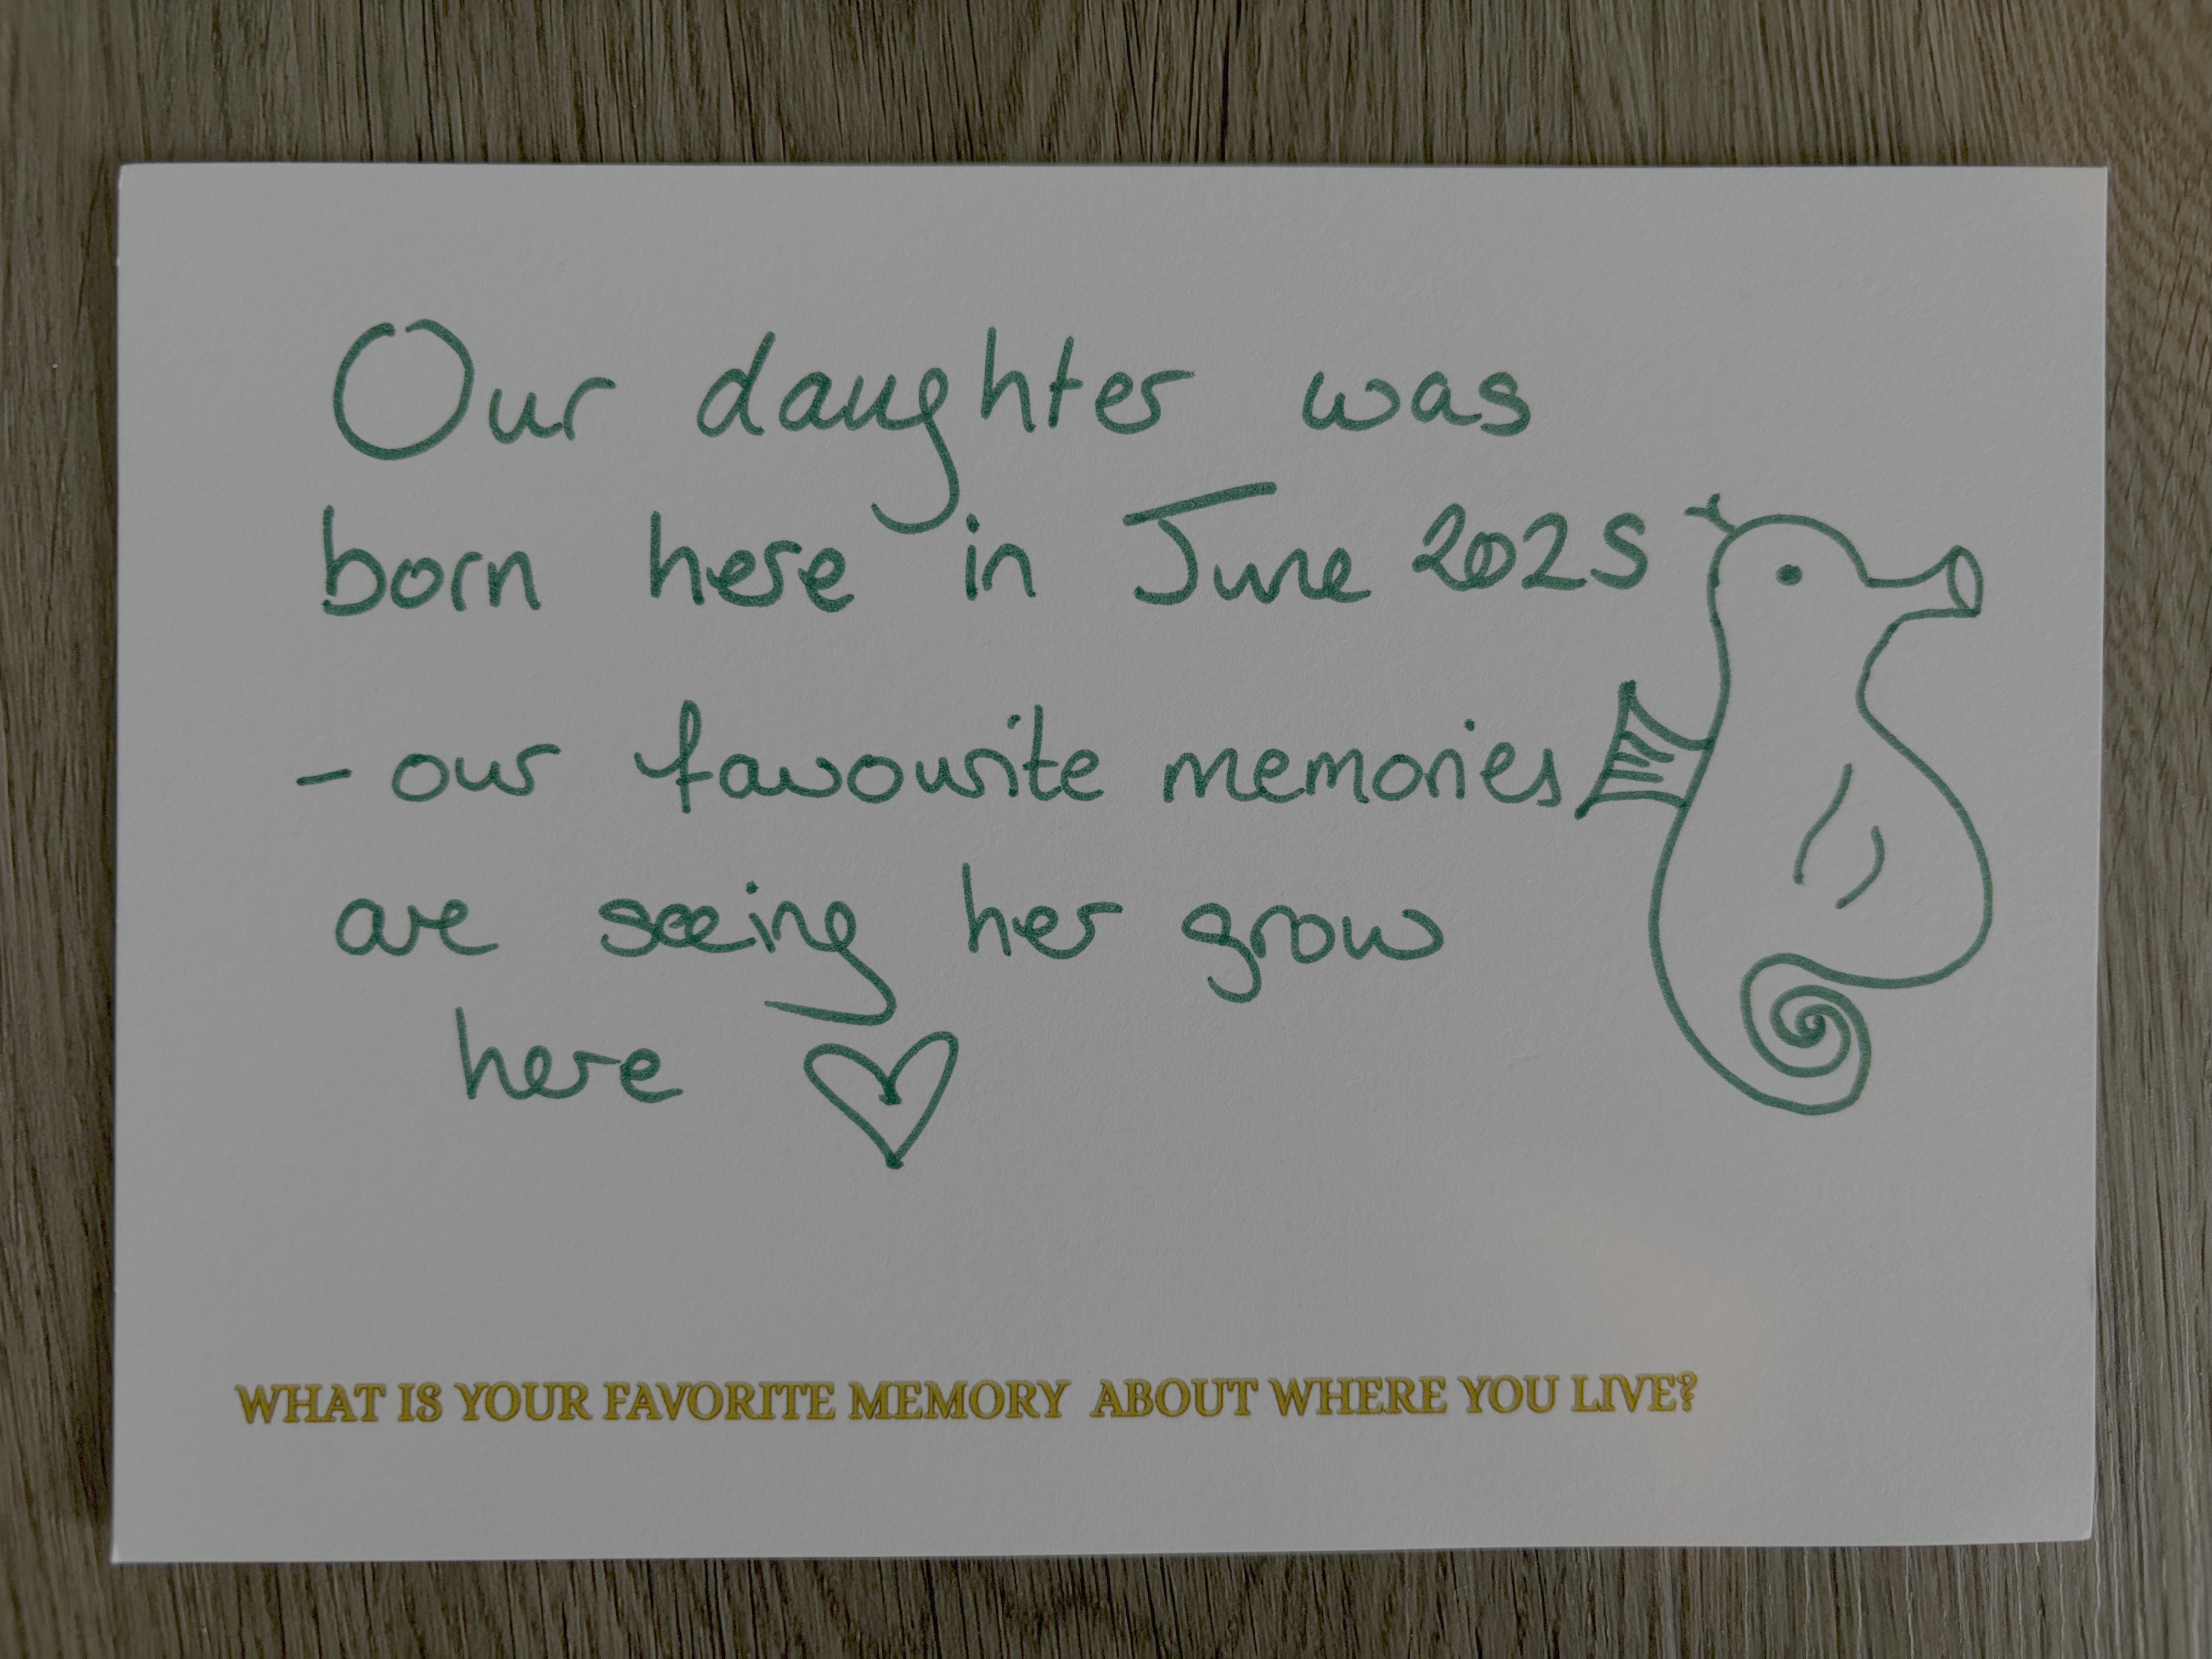 Our daughter was
born here in June 2025
- our favourite memories
are seeing her grow
here ♡
WHAT IS YOUR FAVORITE MEMORY ABOUT WHERE YOU LIVE?